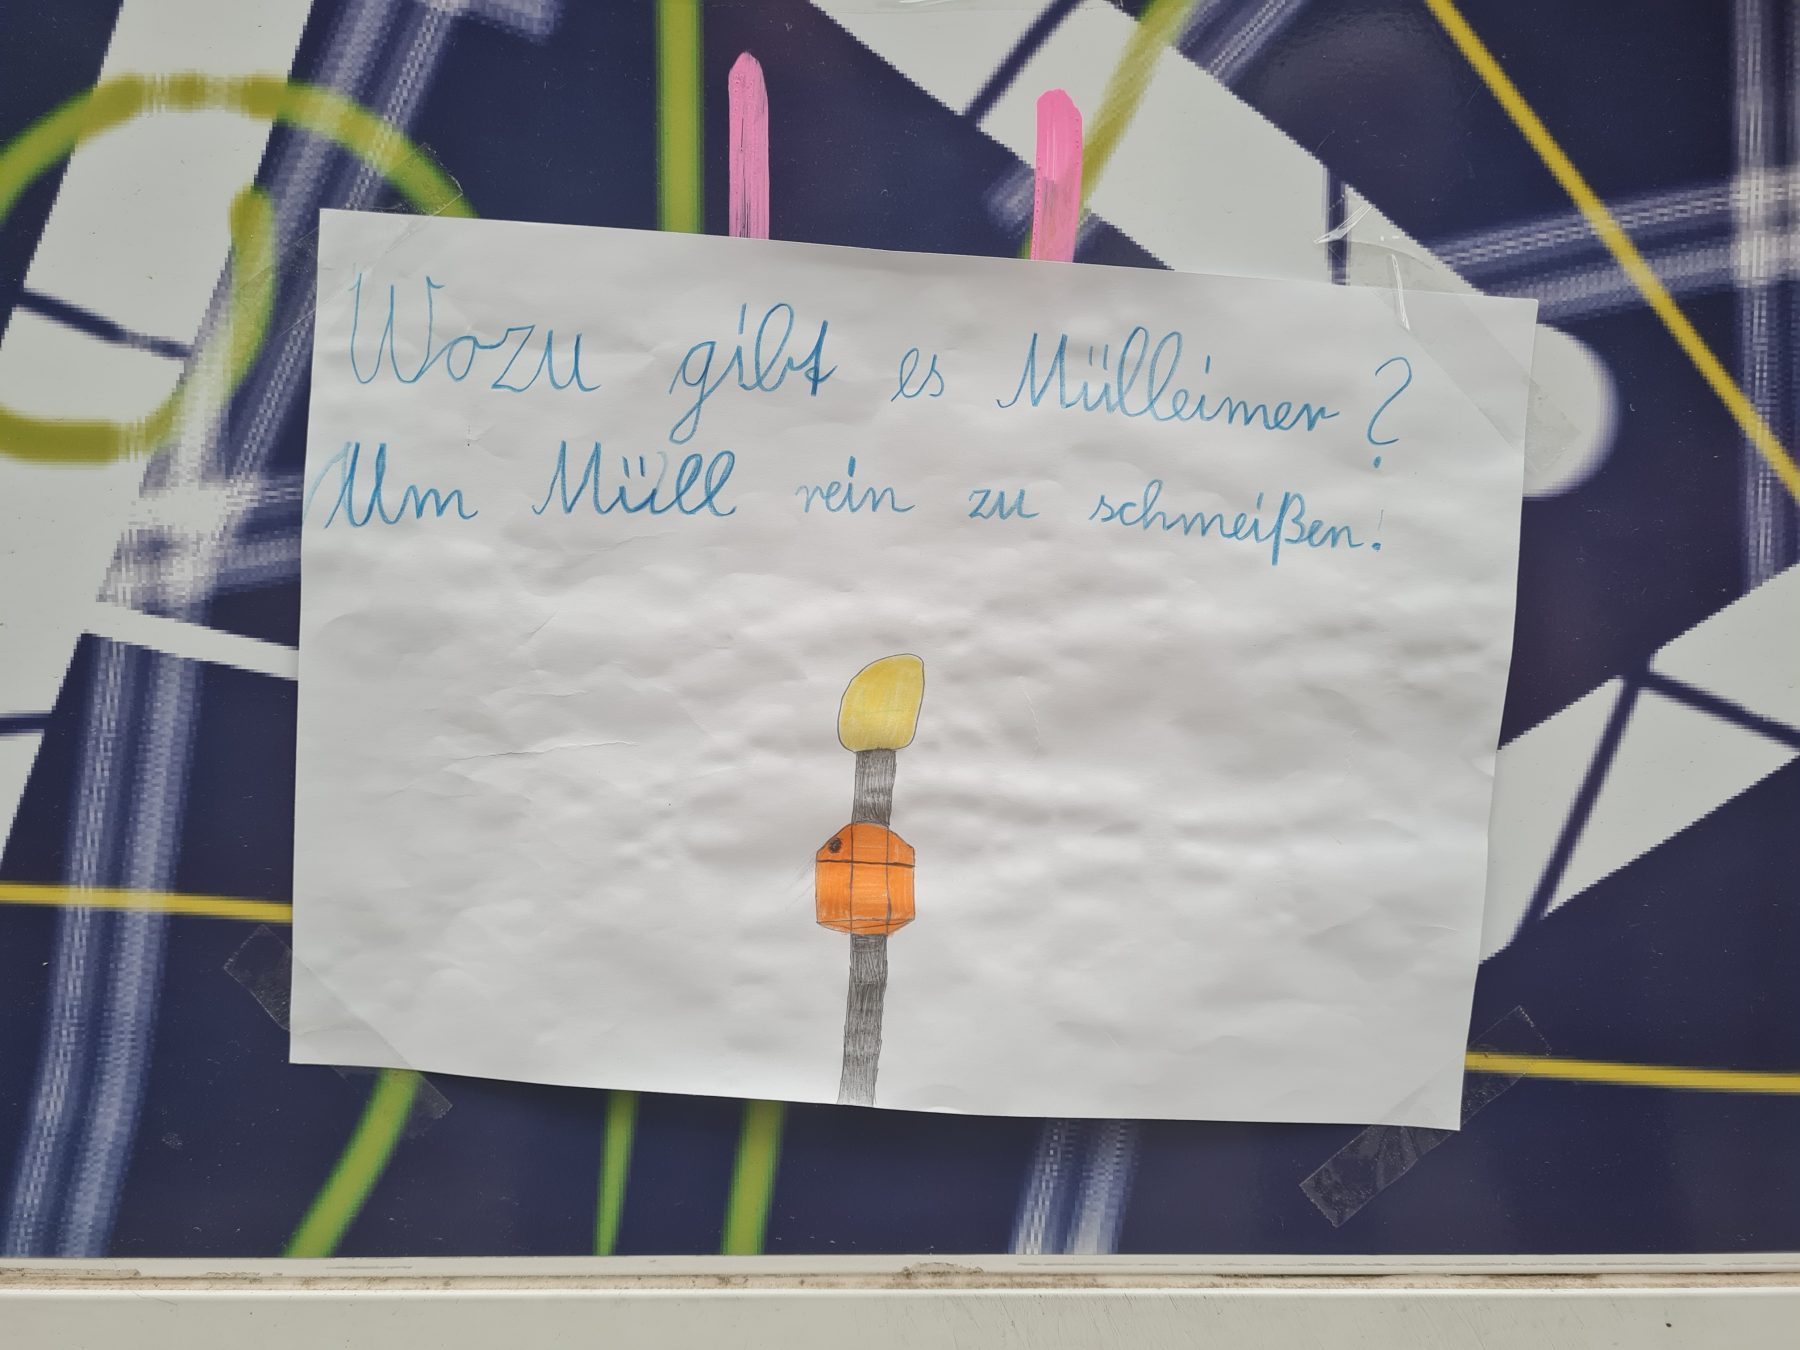 Wozu gibt es Mülleimer?
Um Müll rein zu schmeißen!